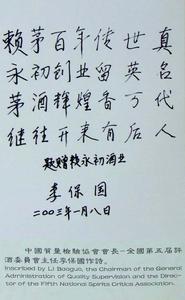 赖茅百年传世真
永初创业留英名
茅酒辉煌香万代
继往开来有后人
题赠赖永初酒业
李保国
二〇〇三年一月八日
中國質量檢驗協會會長-全國第五屆評
酒委員會主任李保國作詩。
Inscribed by Li Baoguo, the Chairman of the General
Administration of Quality Supervision and the Direc-
tor of the Fifth National Spirits Critics Association.